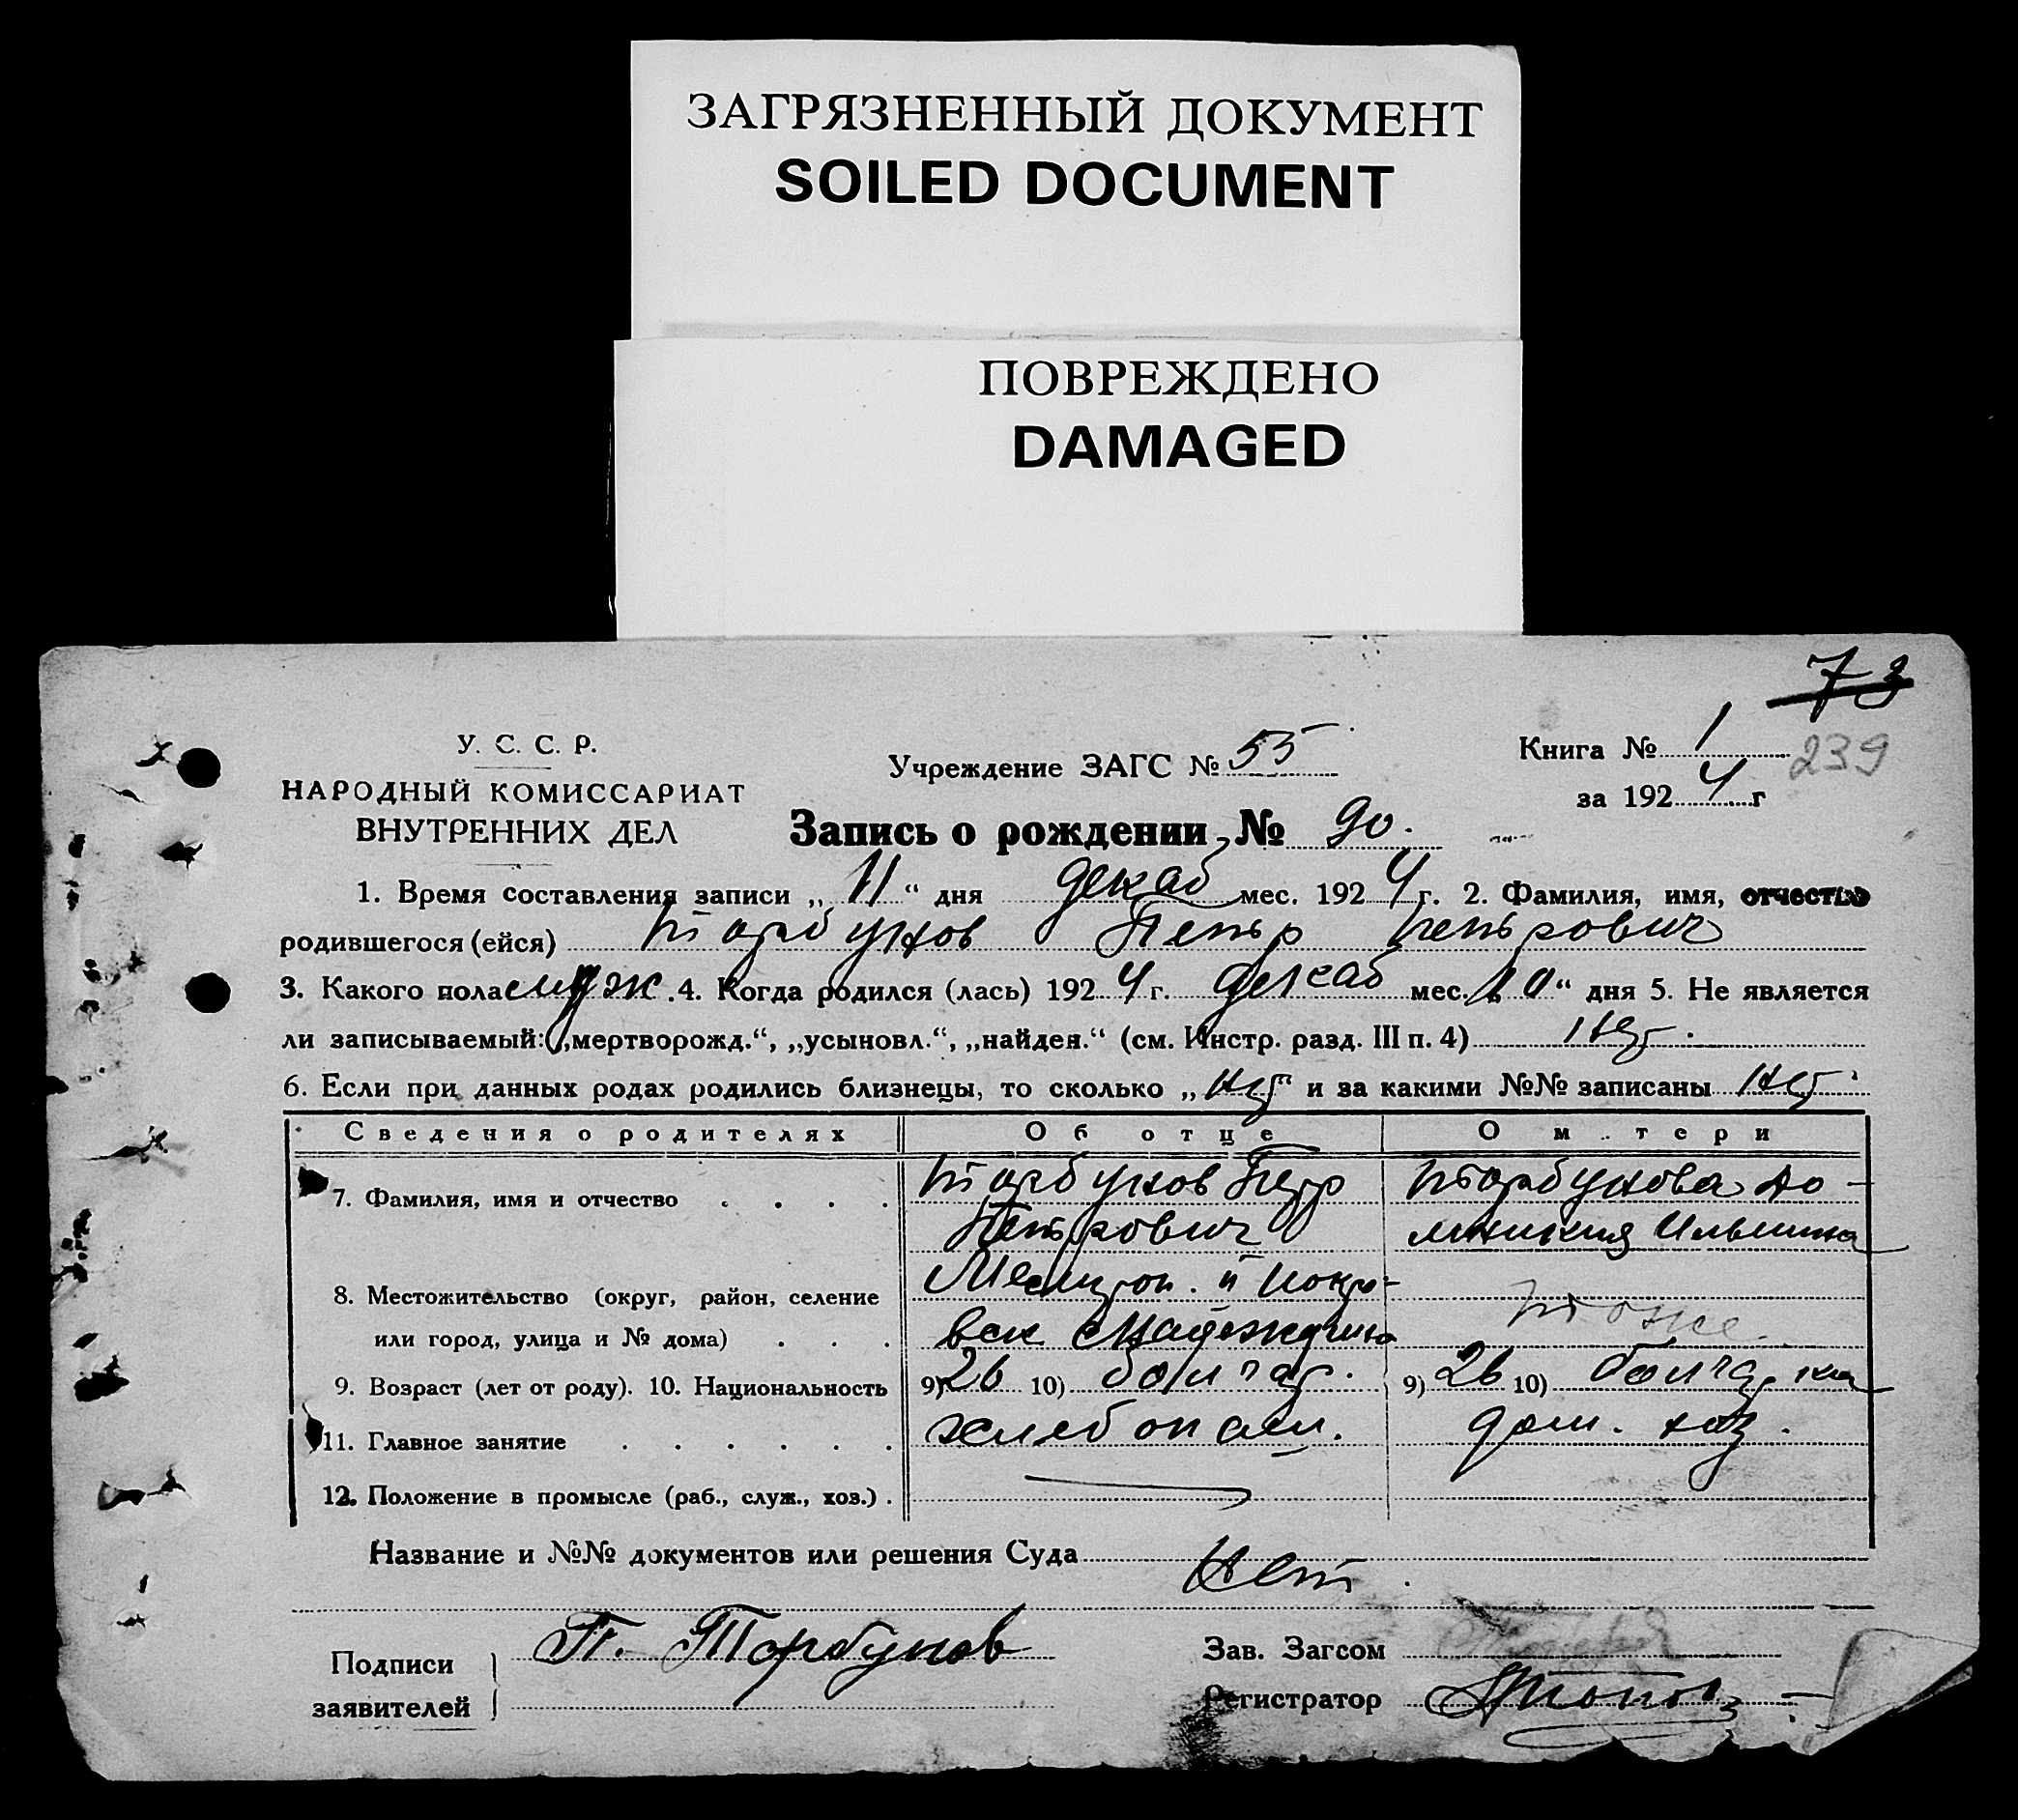 ЗАГРЯЗНЕННЫЙ ДОКУМЕНТ
SOILED DOCUMENT
ПОВРЕЖДЕНО
DAMAGED
73
У. С. С. Р.
НАРОДНЫЙ КОМИССАРИАТ
ВНУТРЕННИХ ДЕЛ
Учреждение ЗАГС № 55
Книга № 1
239
за 1924 г
Запись о рождении № 90.
1. Время составления записи „11“ дня декаб мес. 1924 г. 2. Фамилия, имя, отчество
родившегося (ейся) Торбунов Петр Петрович
3. Какого пола муж. 4. Когда родился (лась) 1924 г. декаб мес. „10“ дня 5. Не является
ли записываемый: „мертворожд.“, „усыновл.“, „найден.“ (см. Инстр. разд. III п. 4) нет.
6. Если при данных родах родились близнецы, то сколько „нет“ и за какими №№ записаны нет
Сведения о родителях Об отце О м тери
7. Фамилия, имя и отчество Торбунов Петр Торбунова До-
Петрович Ильинична
8. Местожительство (округ, район, селение Мелитоп. п Покро-
или город, улица и № дома) вск Надеждино тоже
9. Возраст (лет от роду). 10. Национальность 9) 26 10) болгар. 9) 26 10) болгарка
11. Главное занятие хлебопаш. дом. хоз.
12. Положение в промысле (раб., служ., хоз.)
Название и №№ документов или решения Суда Нет.
Подписи заявителей П. Торбунов
Зав. Загсом
Регистратор